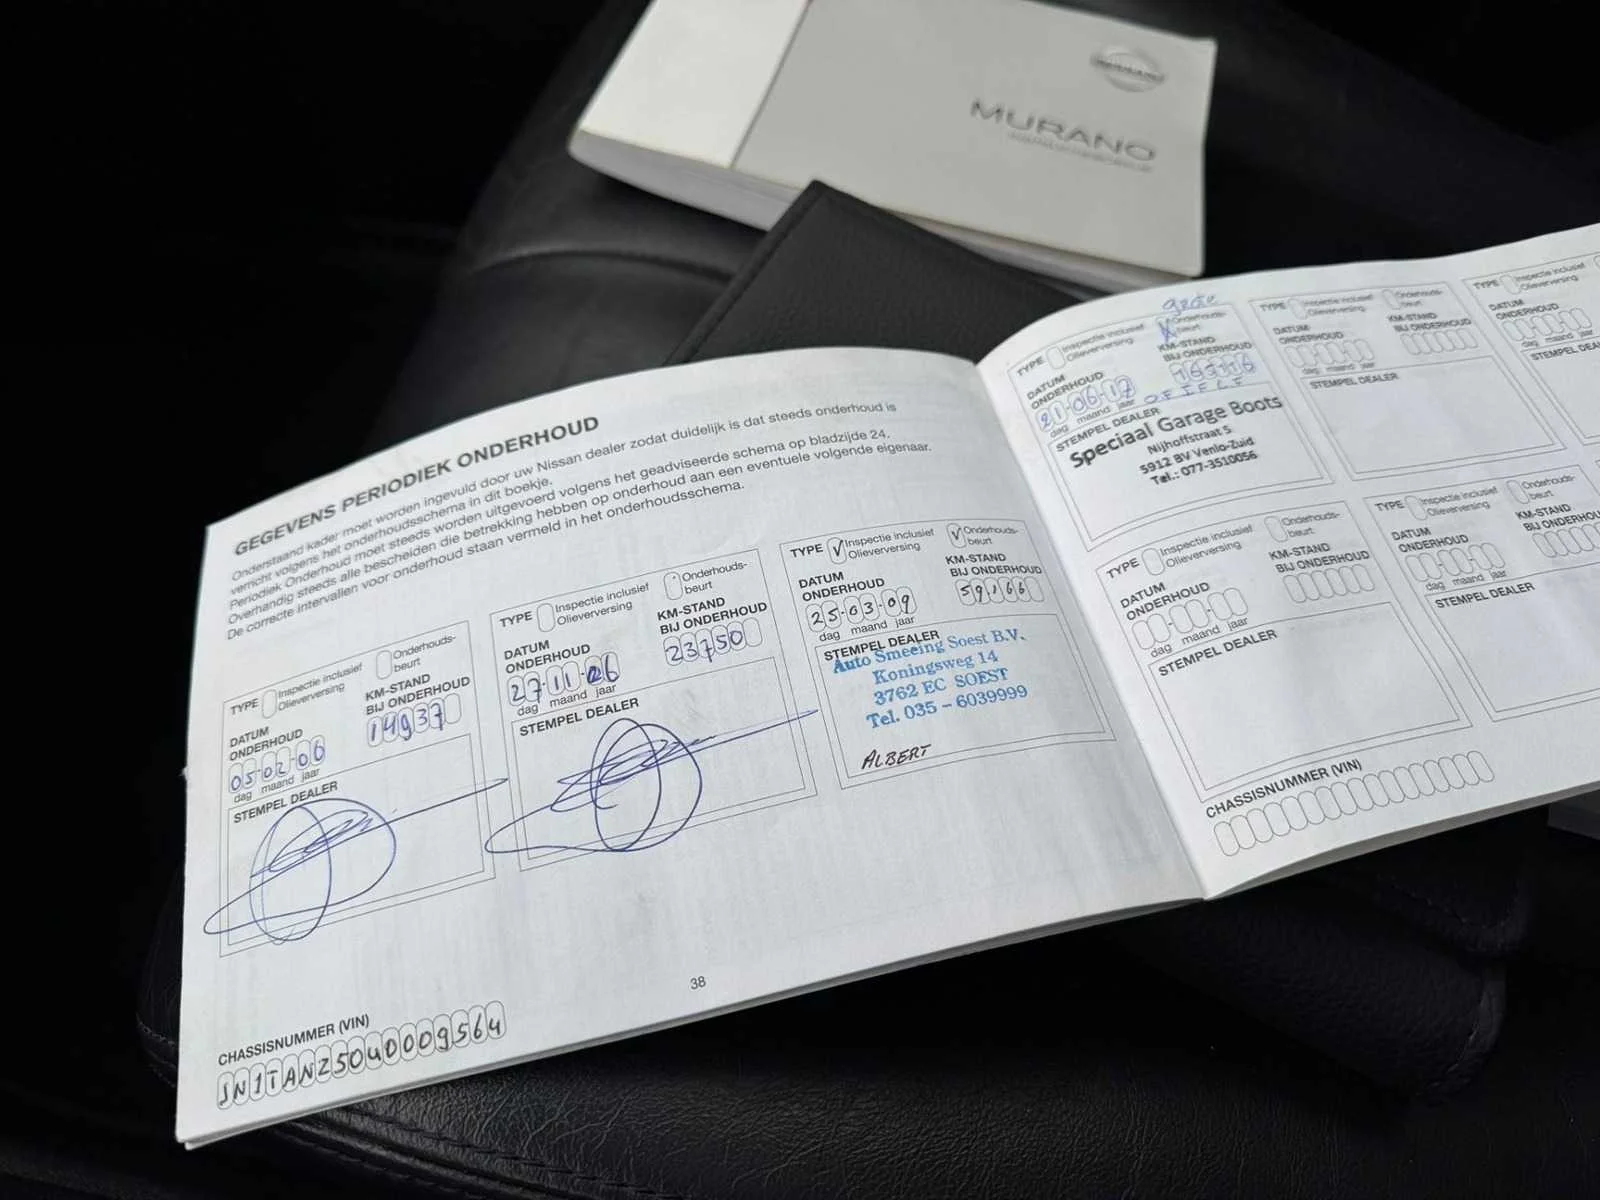 NISSAN
MURANO
GEGEVENS PERIODIEK ONDERHOUD
Onderstaand kader moet worden ingevuld door uw Nissan dealer zodat duidelijk is dat steeds onderhoud is
verricht volgens het onderhoudsschema in dit boekje.
Periodiek Onderhoud moet steeds worden uitgevoerd volgens het geadviseerde schema op bladzijde 24.
Overhandig steeds alle bescheiden die betrekking hebben op onderhoud aan een eventuele volgende eigenaar.
De correcte intervallen voor onderhoud staan vermeld in het onderhoudsschema.
TYPE Inspectie inclusief Olieverversing Onderhouds-beurt
DATUM ONDERHOUD
KM-STAND BIJ ONDERHOUD
05-02-06
14937
dag maand jaar
STEMPEL DEALER
TYPE Inspectie inclusief Olieverversing Onderhouds-beurt
DATUM ONDERHOUD
KM-STAND BIJ ONDERHOUD
27-11-06
23750
dag maand jaar
STEMPEL DEALER
TYPE √ Inspectie inclusief Olieverversing √ Onderhouds-beurt
DATUM ONDERHOUD
KM-STAND BIJ ONDERHOUD
25-03-09
59166
dag maand jaar
STEMPEL DEALER
Auto Smeeing Soest B.V.
Koningsweg 14
3762 EC SOEST
Tel. 035 - 6039999
ALBERT
38
CHASSISNUMMER (VIN)
JN1TANZ50U0009564
grote
TYPE Inspectie inclusief Olieverversing X Onderhouds-beurt
DATUM ONDERHOUD
KM-STAND BIJ ONDERHOUD
21-06-17
163116
dag maand jaar
STEMPEL DEALER
Speciaal Garage Boots
Nijhoffstraat 5
5912 BV Venlo-Zuid
Tel.: 077-3510056
TYPE Inspectie inclusief Olieverversing Onderhouds-beurt
DATUM ONDERHOUD
KM-STAND BIJ ONDERHOUD
dag maand jaar
STEMPEL DEALER
TYPE Inspectie inclusief Olieverversing
DATUM ONDERHOUD
dag maand jaar
STEMPEL
TYPE Inspectie inclusief Olieverversing Onderhouds-beurt
DATUM ONDERHOUD
KM-STAND BIJ ONDERHOUD
dag maand jaar
STEMPEL DEALER
TYPE Inspectie inclusief Olieverversing Onderhouds-beurt
DATUM ONDERHOUD
KM-STAND BIJ ONDERHOUD
dag maand jaar
STEMPEL DEALER
CHASSISNUMMER (VIN)